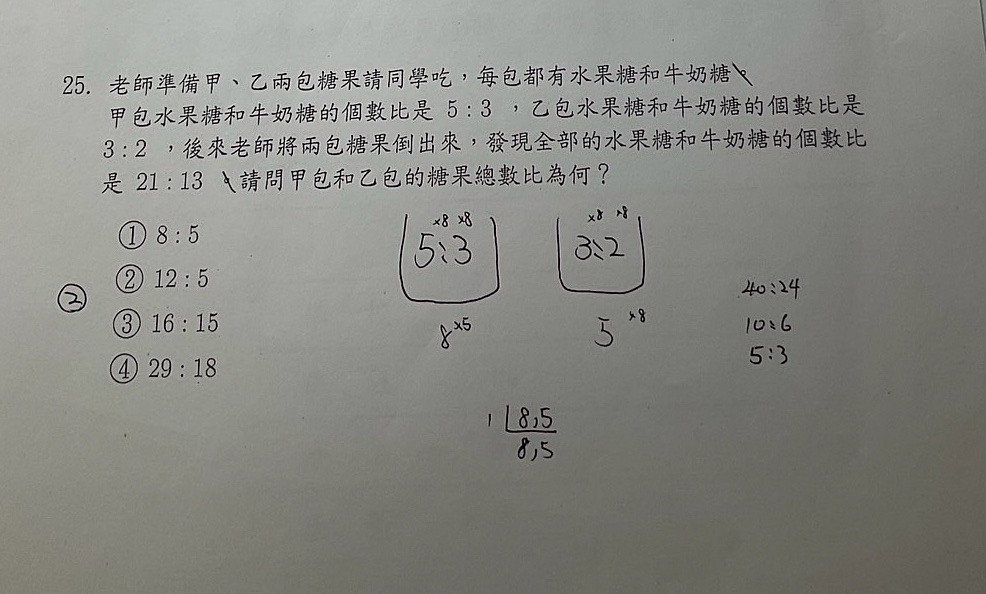 25. 老師準備甲、乙兩包糖果請同學吃，每包都有水果糖和牛奶糖。
甲包水果糖和牛奶糖的個數比是 5：3 ，乙包水果糖和牛奶糖的個數比是
3：2 ，後來老師將兩包糖果倒出來，發現全部的水果糖和牛奶糖的個數比
是 21：13 。請問甲包和乙包的糖果總數比為何？
① 8：5
② 12：5
③ 16：15
④ 29：18
②
×8 ×8
5:3
8 ×5
×8 ×8
3:2
5 ×8
40:24
10:6
5:3
1 8,5
8,5